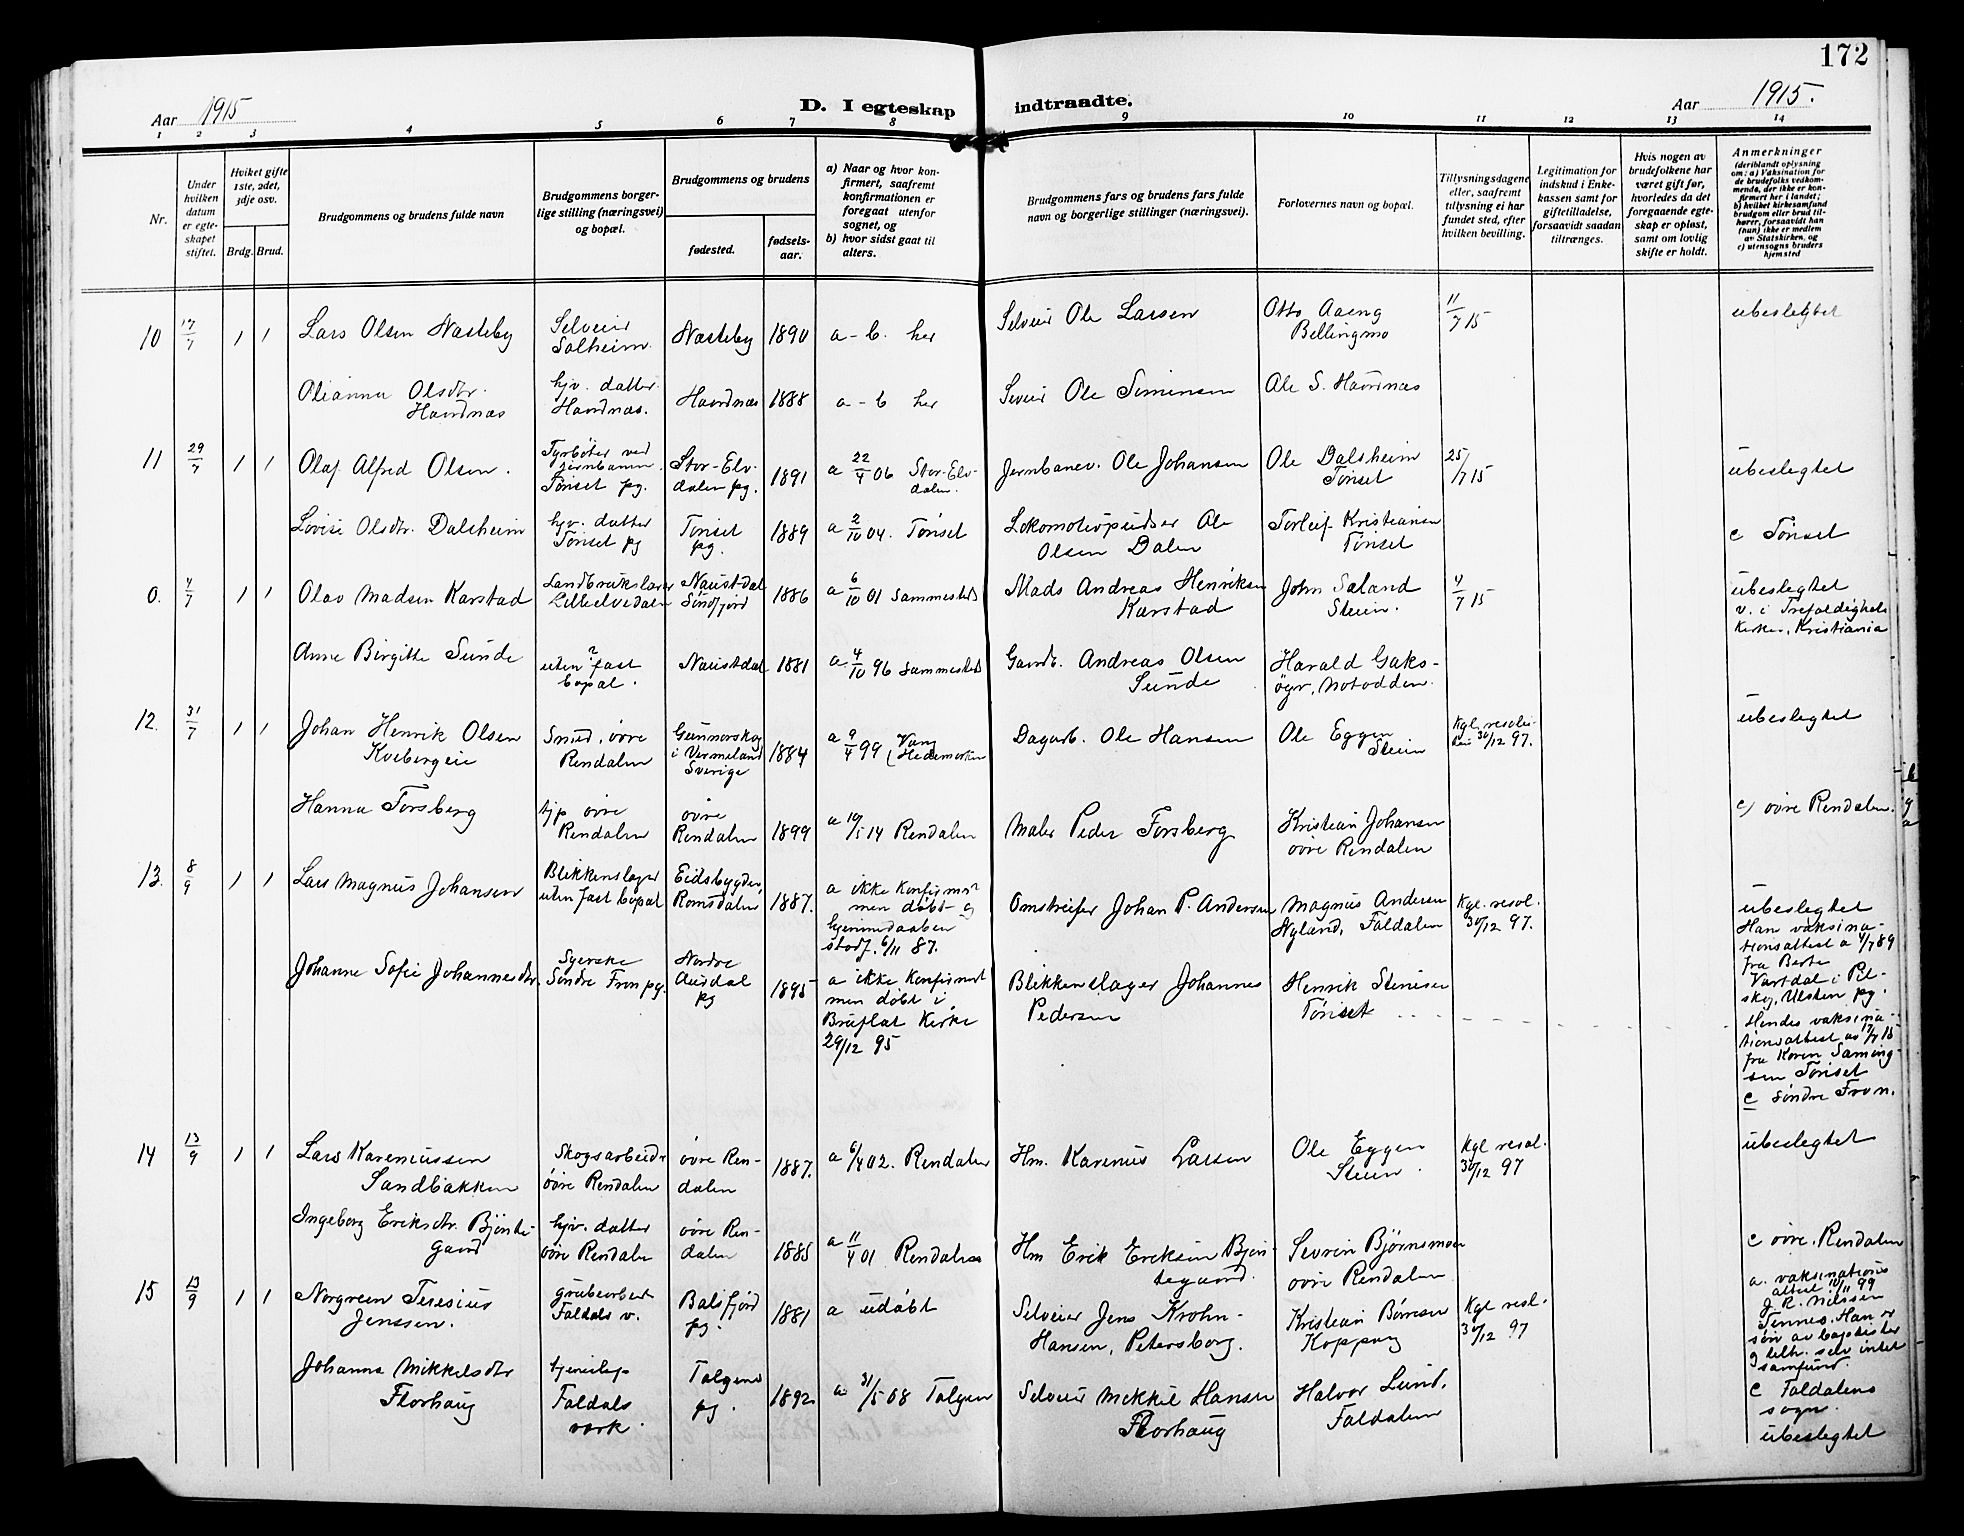 172
Aar 1915
D. I egteskap indtraadte.
Aar 1915.
1 2 3 4 5 6 7 8 9 10 11 12 13 14
Nr.
Under hvilken datum er egteskapet stiftet.
Hviket gifte 1ste, 2det, 3dje osv.
Brdg. Brud.
Brudgommens og brudens fulde navn
Brudgommens borgerlige stilling (næringsvei) og bopæl.
Brudgommens og brudens
fødested.
fødselsaar.
a) Naar og hvor konfirmert, saafremt konfirmationen er foregaat utenfor sognet, og
b) hvor sidst gaat til alters.
Brudgommens fars og brudens fars fulde navn og borgerlige stillinger (næringsvei).
Forlovernes navn og bopæl.
Tillysningsdagene eller, saafremt tillysning ei har fundet sted, efter hvilken bevilling.
Legitimation for indskud i Enkekassen samt for giftetilladelse, forsaavidt saadan tiltrænges.
Hvis nogen av brudefolkene har været gift før, hvorledes da det foregaaende egteskap er opløst, samt om lovlig skifte er holdt.
Anmerkninger
(deriblandt oplysning om: a) Vaksination for de brudefolks vedkommende, der ikke er konfirmert her i landet;
b) hvilket kirkesamfund brudgom eller brud tilhører, forsaavidt han (hun) ikke er medlem av Statskirken, og
c) utensogns bruders hjemsted
10 17/7 1 1 Lars Olsen Næsteby Selveier Solheim. Næsteby 1890 a - b. her Selveier Ole Larsen Otto Aaeng Bellingmo 11/7 15 ubeslegtet
Olianna Olsdtr. Havrdnæs hjv. datter Havrdnæs. Havrdnæs 1888 a - b her Ole Simensen Ole S. Havrdnæs
11 29/7 1 1 Olaf Alfred Olsen. ved jernbanen Tønset pg. Stor-Elvdalen pg. 1891 a 22/4 06 Stor-Elvdalen. Jernbanev. Ole Johansen Ole Dalsheim Tønset 25/7 15 ubeslegtet
Lovise Olsdtr. Dalsheim hjv. datter Tønset pg Tønset pg. 1889 a 2/10 04. Tønset Lokomotivpudser Ole Olsen Dalen Torleif Kristiansen Tønset c Tønset
0. 4/7 1 1 Olav Madsen Karstad Landbrukslærer Lilleelvedalen Naustdal Søndfjord 1886 a 6/10 01 sammesteds Mads Andreas Henriksen Karstad John Søland Steien. 4/7 15 ubeslegtet v. i Trefoldigheds Kirken, Kristiania
Anne Birgitte Sunde uten fast bopæl. Naustdal 1881 a 4/10 96 sammesteds Gaardb. Andreas Olsen Sunde Harald , Notodden.
12. 31/7 1 1 Johan Henrik Olsen Kvebergeie Smed, øvre Rendalen Gunnarskog i Vermeland Sverige 1884 a 9/4 99 (Vang Hedemarken Dagarb. Ole Hansen Ole Eggen Steien Kgl. resolution 30/12 97. ubeslegtet
Hanna Forsberg tjp øvre Rendalen øvre Rendalen 1899 a 19/5 14 Rendalen Maler Peder Forsberg Kristian Johansen øvre Rendalen c) øvre Rendalen.
13. 8/9 1 1 Lars Magnus Johansen Blikkenslager uten fast bopæl Eidsbygden, Romsdalen 1887. a ikke konfirm. men døbt og hjemmedaaben stadf. 6/11 87. Omstreifer Johan P. Andersen Magnus Andersen Nyland, Faldalen Kgl. resol. 30/12 97. ubeslegtet Han vaksinationsattest a 4/7 89 fra Berte Vartdal i Pilskog, Ulsten pg.
Johanne Sofie Johannesdtr. Syerske Søndre Fron pg. Nordre Aurdal pg 1895 a ikke konfirmert men døbt i Bruflat Kirke 29/12 95 Blikkenslager Johannes Pedersen Henrik Stenisen Tønset Hendes vaksinationsattest av 17/7 15 fra Karen Samingsen Tønset c søndre Fron.
14 13/9 1 1 Lars Karenussen Sandbakken Skogsarbeider øvre Rendalen øvre Rendalen 1887. a 6/4 02. Rendalen Hm. Karenus Larsen Ole Eggen Steien. Kgl resol. 30/12 97 ubeslegtet
Ingeborg Eriksdtr. Bjøntegaard hjv. datter øvre Rendalen øvre Rendalen 1885 a 11/4 01 Rendalen Hm Erik Eriksen Bjøntegaard. Sevrin Bjørnsmoen øvre Rendalen c øvre. Rendalen
15 13/9 1 1 Norgreen Teresius Jenssen. grubearbeid. Faldals v. Balsfjord pg. 1881 a udøbt Selveier Jens Krohn-Hansen, Petersborg. Kristian Børresen Koppang Kgl resol. 30/12 97 a. vaksinations attest 10/11 99 J. R. Nilssen Tennes. Han er søn av baptister & tilh. selv intet samfund.
Johanna Mikkelsdtr Florhaug tjenestep Faldals verk. Tolgens pg. 1892 a 31/5 08 Tolgen Selveier Mikkel Hansen Florhaug Halvor Lund, Faldalen c Faldalens sogn. ubeslegtet